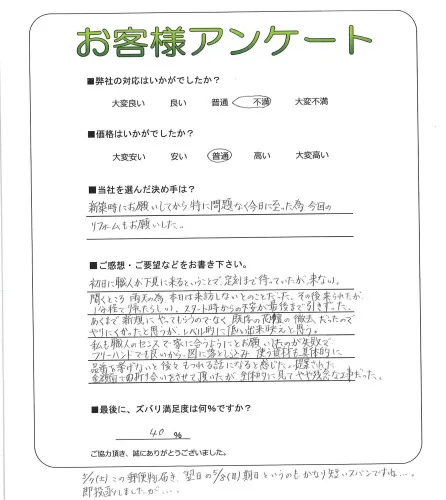 お客様アンケート
■弊社の対応はいかがでしたか?
大変良い 良い 普通 不満 大変不満
■価格はいかがでしたか?
大変安い 安い 普通 高い 大変高い
■当社を選んだ決め手は?
新築時にお願いしてから特に問題なく今日に至った為、今回の
リフォームもお願いした。
■ご感想・ご要望などをお書き下さい。
初日に職人が下見に来るということで、定刻まで待っていたが、来ない。
聞くところ、雨天の為、本日は来訪しないとのことだった。その後来られたが、
1分程で帰たらしい。スタート時からの不安が最後まで引きずった。
あくまで新規にやってもらうのでなく、既存の の撤去だったので
やりにくかったと思うが、レベル的に低い出来映えと思う。
私も職人のセンスで家に合うようにとお願いしたのが失敗で
フリーハンドでも良いから、図に落とし込み、使う資材も具体的に
品番を挙げないと後々もつれる話になると感じた。提案された
金額面での折り合いをさせて頂いたが、全体的に見てやや残念な工事だった。
■最後に、ズバリ満足度は何%ですか?
40 %
ご協力頂き、誠にありがとうございました。
5/7(土)この郵便物届き、翌日の5/8(日)期日というのもかなり短いスパンですね…。
即投函しましたが…。